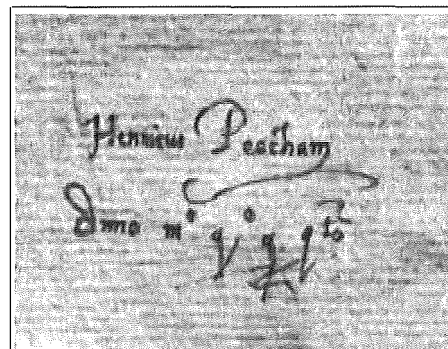 Henricus Peacham
Anno m° q° g q^to